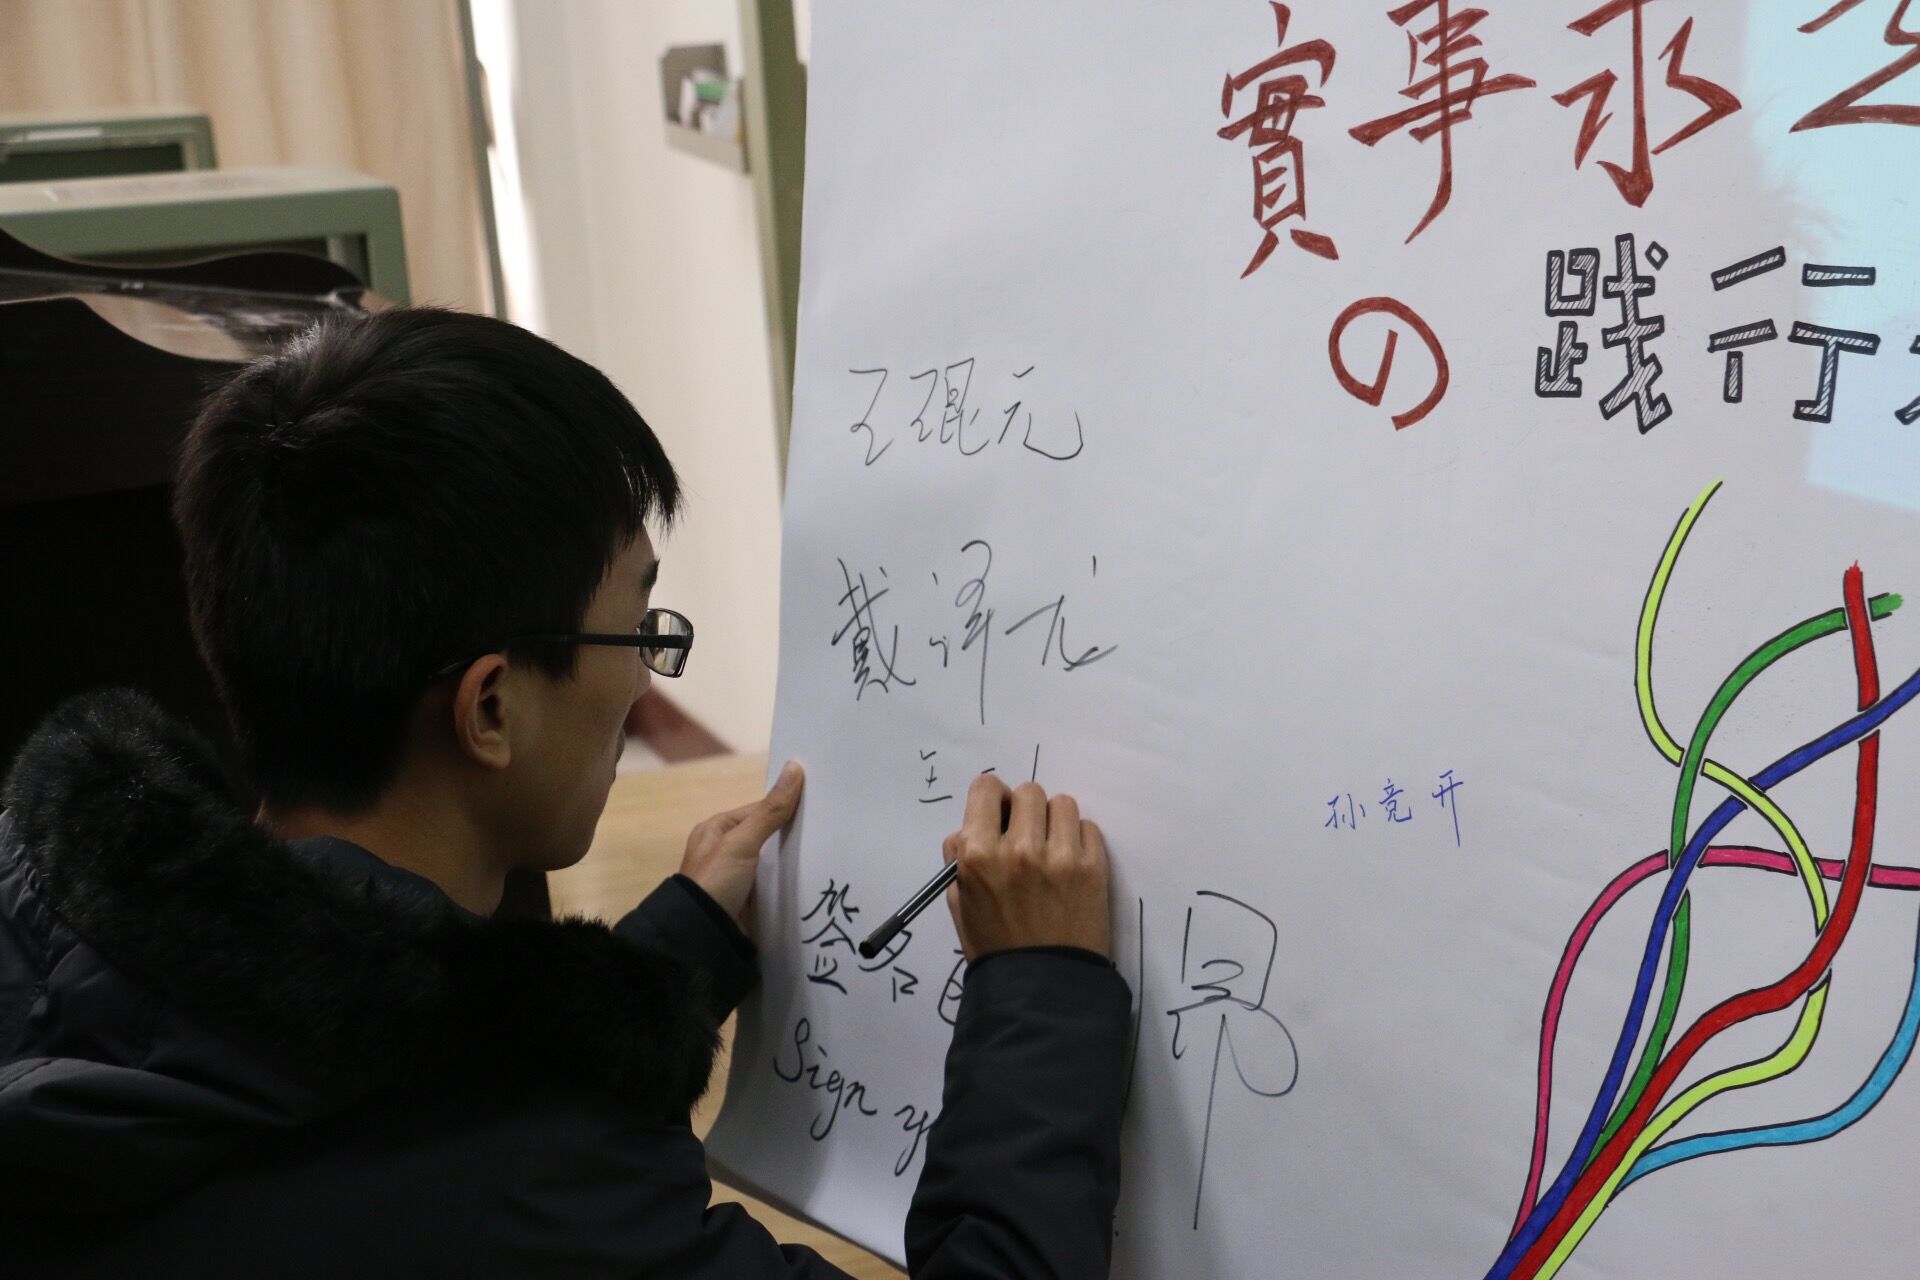 實事求
の 践行
王琨元
戴泽龙
王
孙竞开
签名
昂
Sign